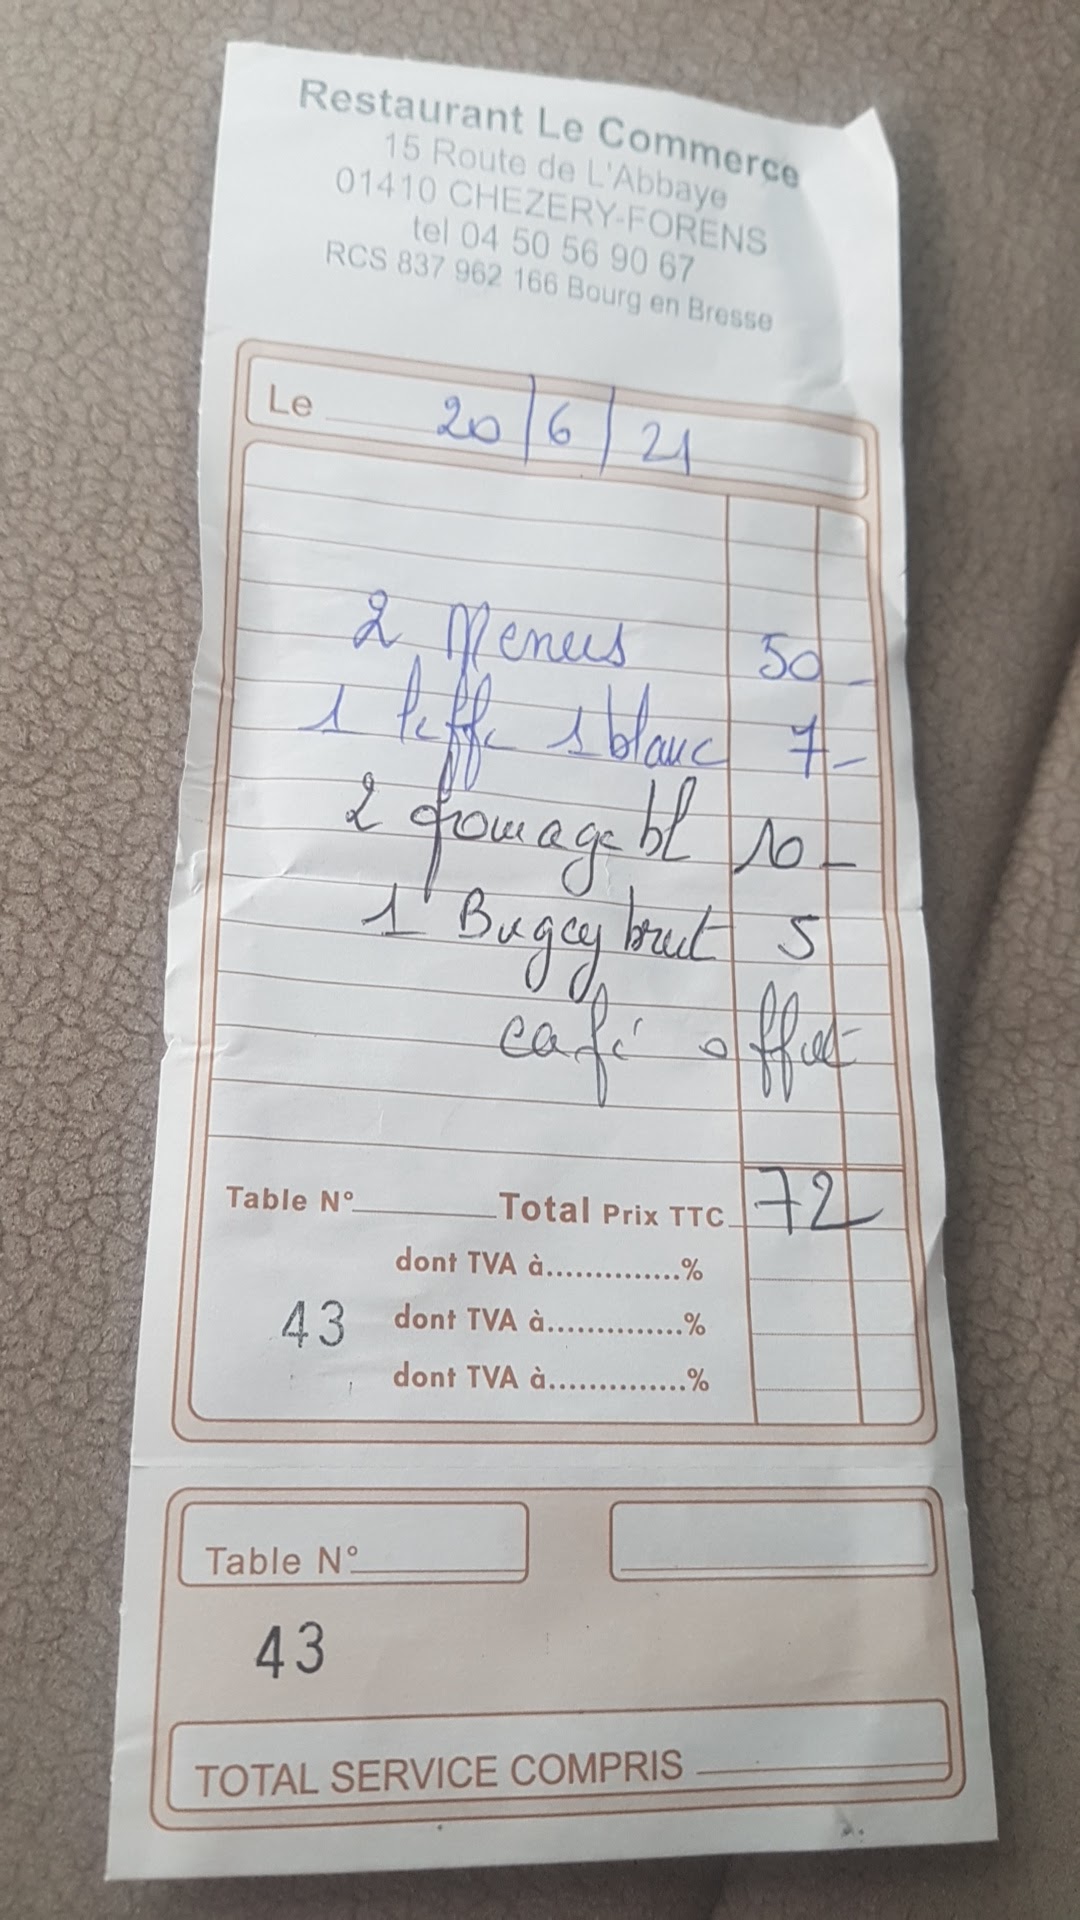 Restaurant Le Commerce
15 Route de L'Abbaye
01410 CHEZERY-FORENS
tel 04 50 56 90 67
RCS 837 962 166 Bourg en Bresse
Le 20/6/21
2 Menus 50 -
1 leffe 1 blanc 7 -
2 fromage bl 10 -
1 Bugey brut 5
café offert
Table N° Total Prix TTC 72
dont TVA à..............%
43 dont TVA à..............%
dont TVA à..............%
Table N°
43
TOTAL SERVICE COMPRIS